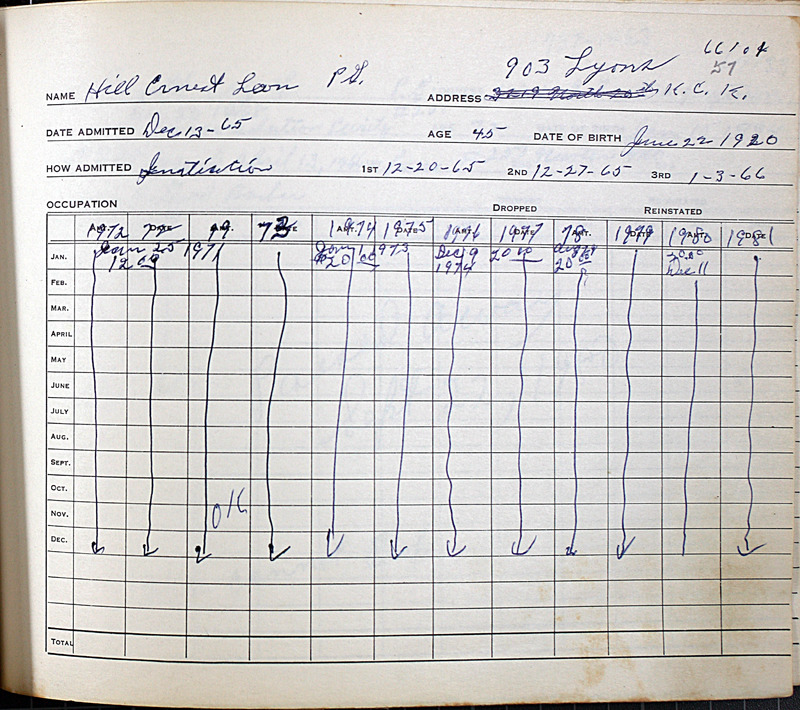 903 Lyons 66104
57
NAME Hill Ernest Leon P.S. ADDRESS K.C.K.
DATE ADMITTED Dec 13-65 AGE 45 DATE OF BIRTH June 22 1920
HOW ADMITTED 1ST 12-20-65 2ND 12-27-65 3RD 1-3-66
OCCUPATION DROPPED REINSTATED
1972 73 1974 1975 1976 1977 78 1979 1980 1981
JAN. Jan 25 1971 Jan 1 1973 Dec 9 20.00 20.00
12.00 $20.00 1974 20.00 Dec 11
FEB.
MAR.
APRIL
MAY
JUNE
JULY
AUG.
SEPT.
OCT.
NOV. OK
DEC.
TOTAL